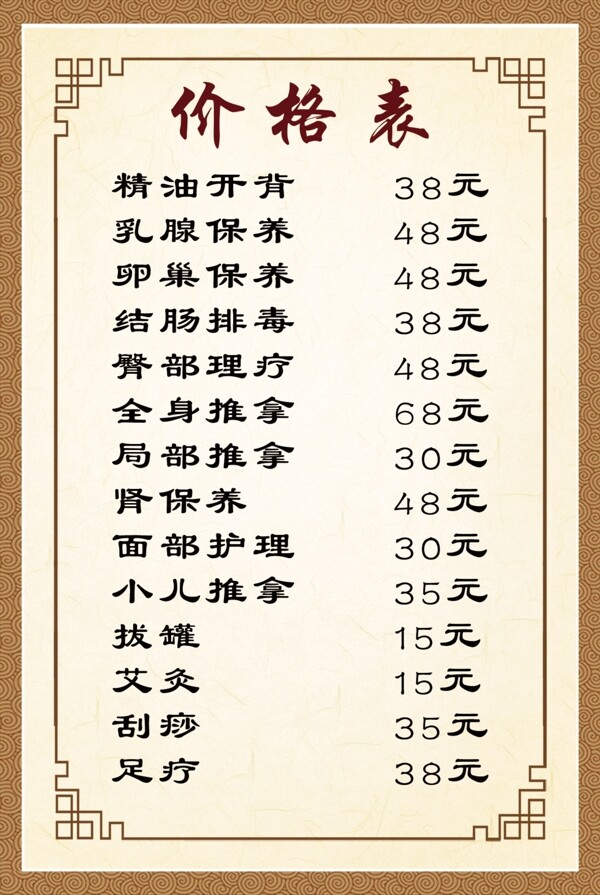 价格表
精油开背 38元
乳腺保养 48元
卵巢保养 48元
结肠排毒 38元
臀部理疗 48元
全身推拿 68元
局部推拿 30元
肾保养 48元
面部护理 30元
小儿推拿 35元
拔罐 15元
艾灸 15元
刮痧 35元
足疗 38元